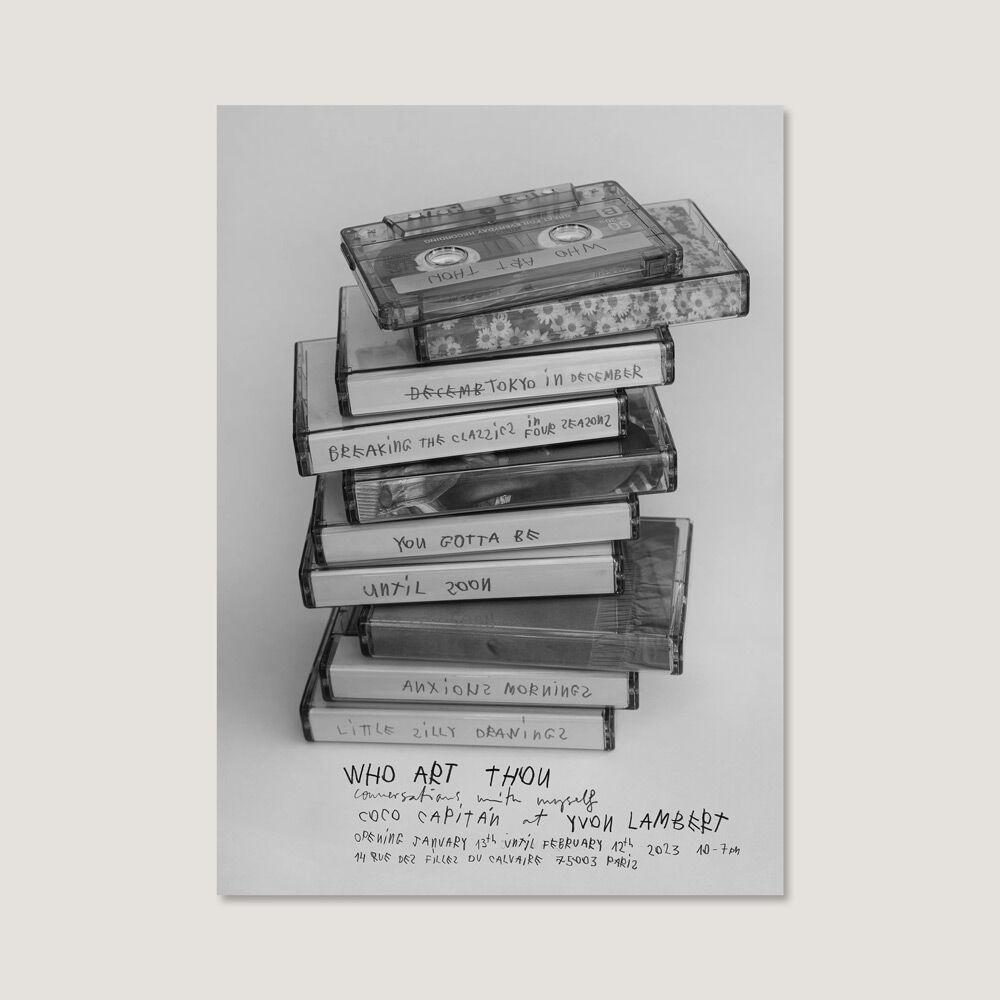 90
B
GREAT FOR EVERYDAY RECORDING
WHO ART THOU
DECEMB TOKYO in DECEMBER
BREAKING THE CLASSICS in FOUR SEASONS
YOU GOTTA BE
UNTIL SOON
ANXIOUS MORNINGS
LITTLE SILLY DRAWINGS
WHO ART THOU
conversations with myself
COCO CAPITÁN at YVON LAMBERT
OPENING JANUARY 13th UNTIL FEBRUARY 12th 2023 10-7pm
14 RUE DES FILLES DU CALVAIRE 75003 PARIS